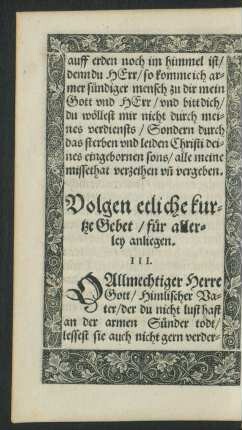 auff erden noch im himmel ist/
denn du HErr/ so komme ich ar-
mer sündiger mensch zu dir mein
Gott vnd HErr/ vnd bitt dich/
du wöllest mir nicht durch mei-
nes verdiensts/ Sondern durch
das sterben vnd leiden Christi dei-
nes eingebornen sons/ alle meine
missethat verzeihen vñ vergeben.
Volgen etliche kur-
tze Gebet/ für aller-
ley anliegen.
III.
O Allmechtiger Herre
Gott/ Himlischer Va-
ter/ der du nicht lust hast
an der armen Sünder todt/
lessest sie auch nicht gern verder-